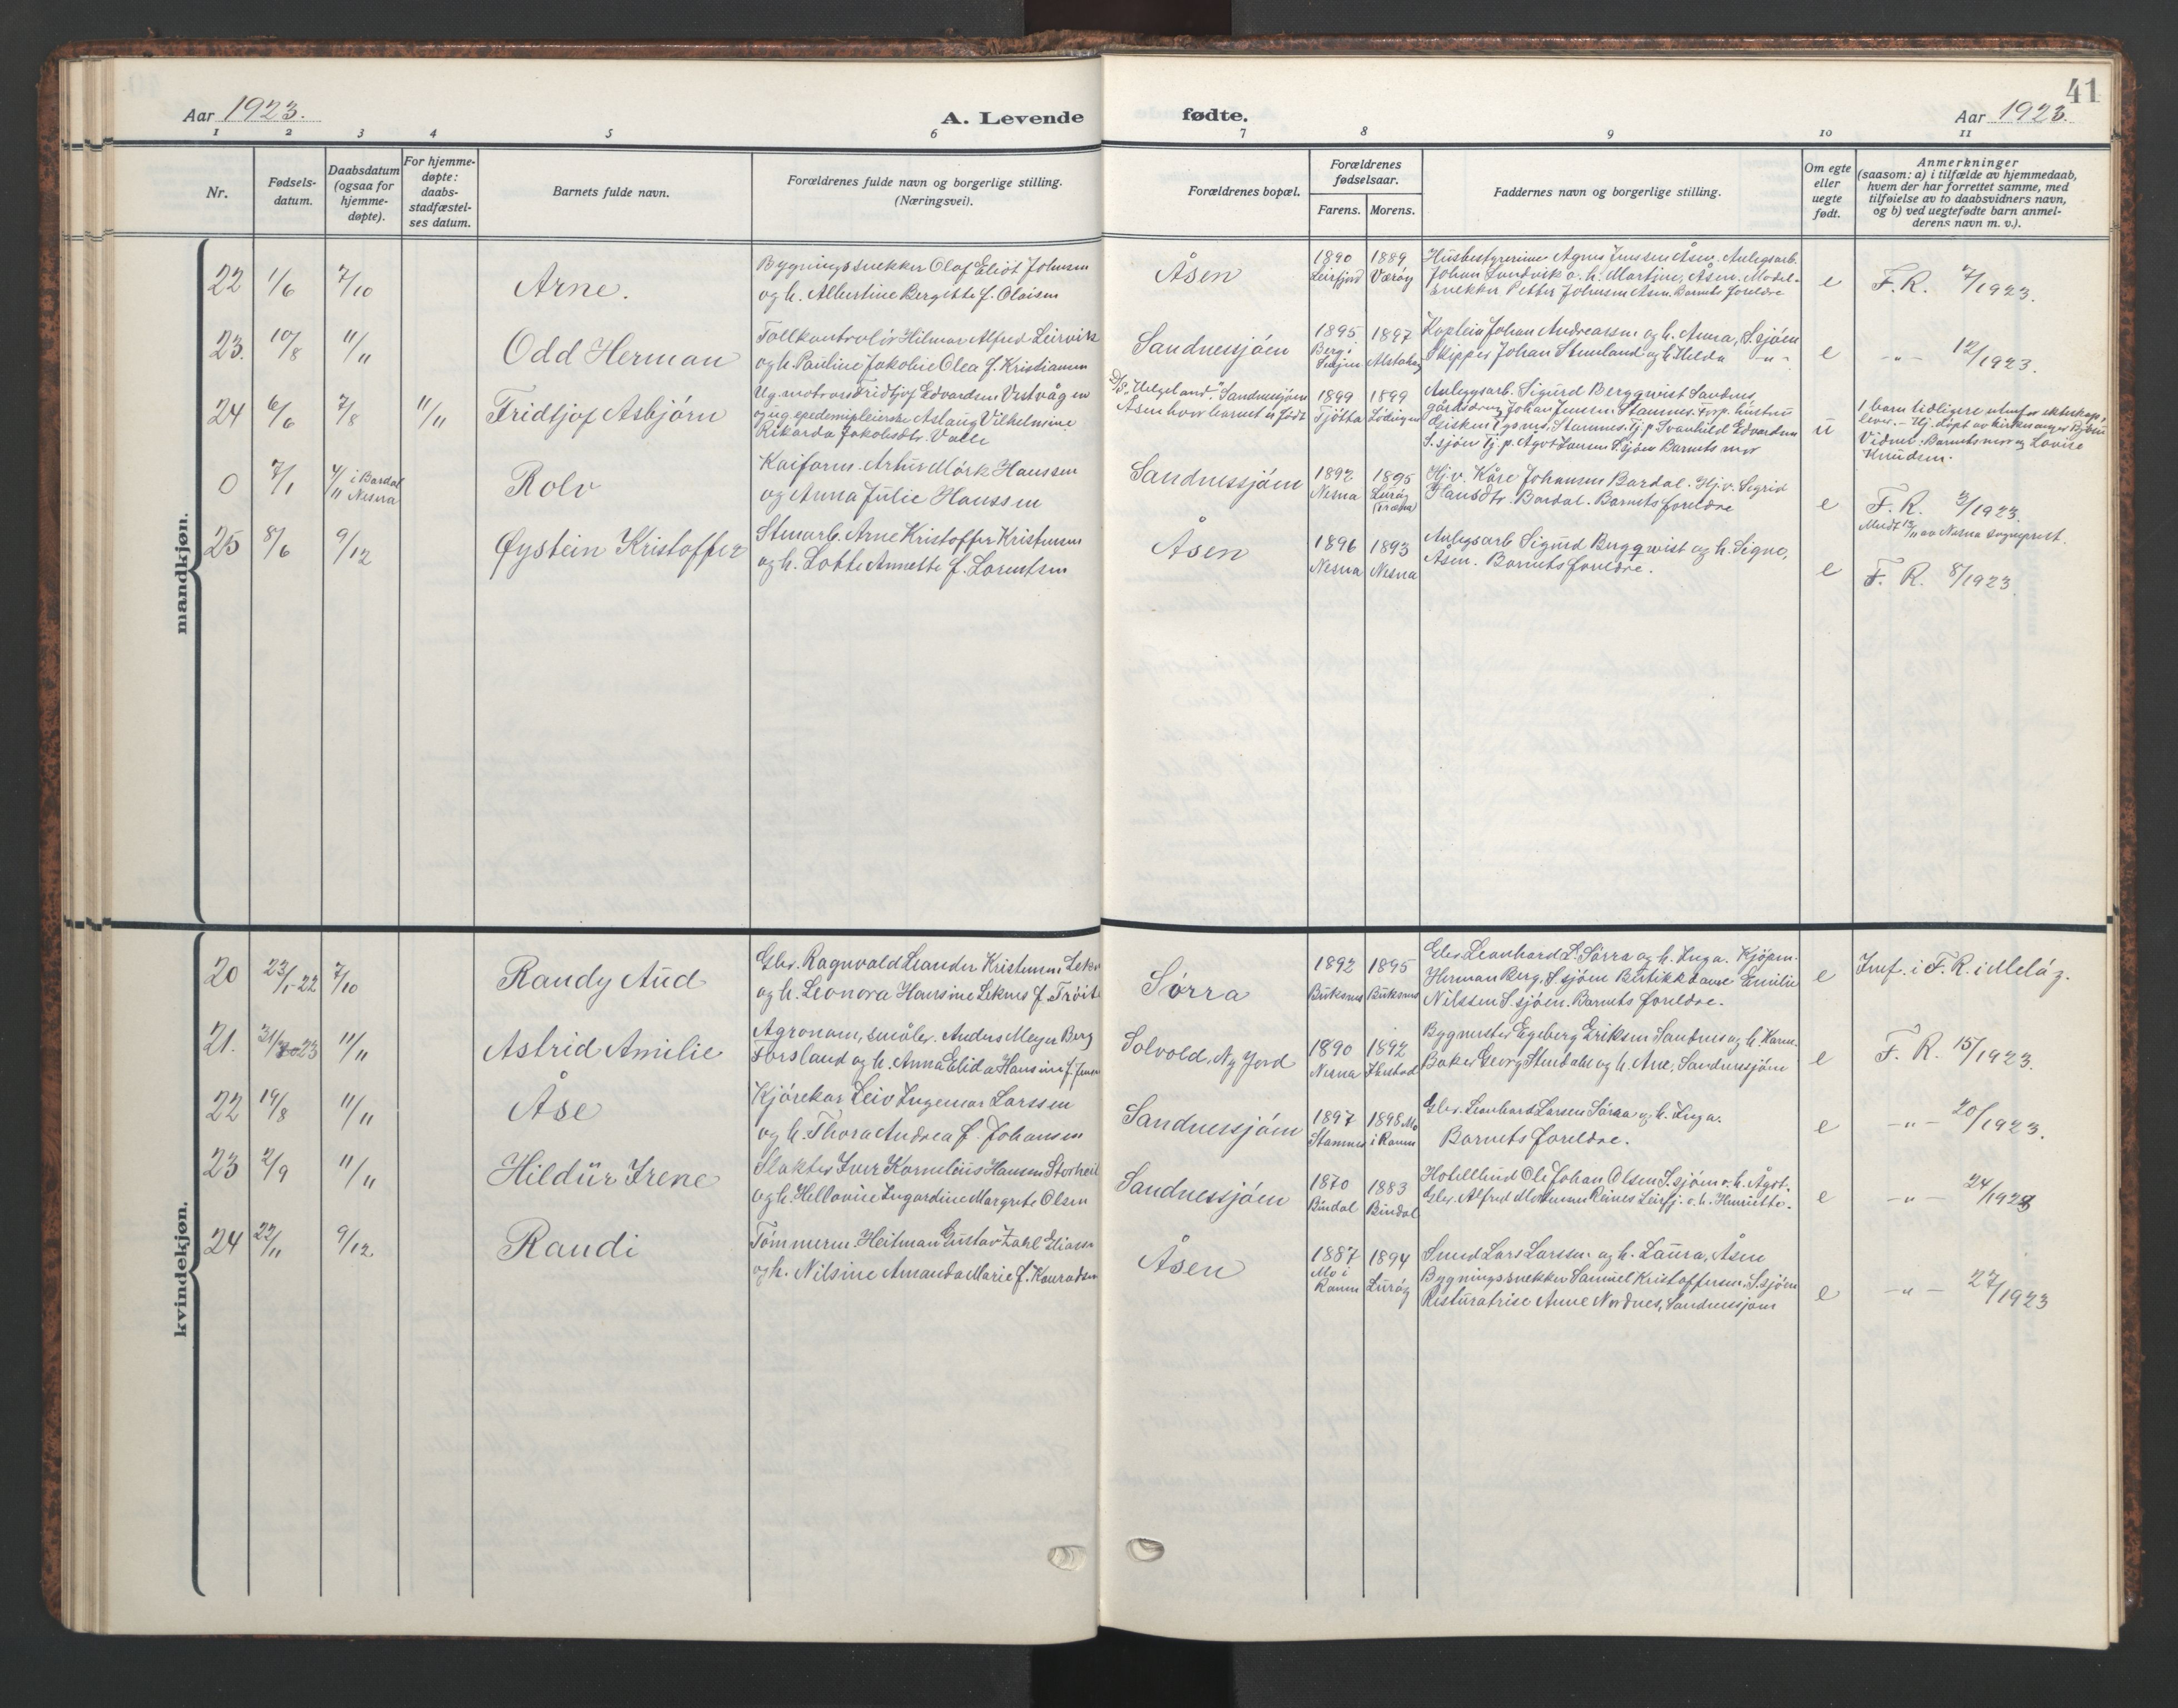 41
Aar 1923.
A. Levende
fødte.
Aar 1923.
1 2 3 4 5 6 7 8 9 10 11
Nr.
Fødsels-
datum.
Daabsdatum
(ogsaa for
hjemme-
døpte).
For hjemme-
døpte:
daabs-
stadfæstel-
ses datum.
Barnets fulde navn.
Forældrenes fulde navn og borgerlige stilling.
(Næringsvei).
Forældrenes bopæl.
Forældrenes
fødselsaar.
Farens. Morens.
Faddernes navn og borgerlige stilling.
Om egte
eller
uegte
født.
Anmerkninger
(saasom: a) i tilfælde av hjemmedaab,
hvem der har forrettet samme, med
tilføielse av to daabsvidners navn,
og b) ved uegtefødte barn anmel-
derens navn m. v.).
mandkjøn.
22 1/6 7/10 Arne.
Bygningssnekker Olaf Eliot Johnsen
og h. Albertine Bergitte f. Olaisen
Åsen
1890 Leirfjord
1889 Værøy
Husbestyrerinne Agnes Jenssen Åsen. Anlegsarb.
Johan Sandvik o. h. Martine, Åsen. Model-
snekker Petter Johnsen Åsen. Barnets foreldre
e
F. R. 7/1923.
23. 10/8 "/" Odd Herman
Tollkontrolør Hilmar Alfred Leirvik
og h. Pauline Jakobie Olea f. Kristiansen
Sandnessjøen
1895 Berg i
1897 Alstahaug
Kaptein Johan Andreassen og h. Anna, S.sjøen
Skipper Johan Stenland og h. Helda -"-
e
-"- 12/1923.
24 6/6 7/8 "/" Fridtjof Asbjørn
Ug. Fridtjof Edvardsen Vestvågen
og ug. epedemipleierske Aslaug Vilhelmine
Rikarda Jakobsdtr. Valle
D/S. "Helgeland". Sandnessjøen
Åsen hvor barnet er født
1899 Tjøtta
1899 Lødingen
Anlegsarb. Sigurd Bergqvist Sandnes,
gårdsdreng Johan Jensen Stamnes.
Stamnes. Tj. p. Svanhild Edvardsen
S. sjøen Tj. p. Ågot Larsen S. sjøen Barnets mor
u
1 barn tidligere utenfor ekteskap,
lever. - Hj. døpt av kirkesanger
Vidner: Barnets mor og Lovise
Knudsen.
0 7/1 4/11 i Bardal Nesna Rolv
Kaiform. Artur Mørk Hanssen
og Anna Julie Hanssen
Sandnessjøen
1892 Nesna
1895 Lurøy (Træna)
Hj.v. Kåre Johansen Bardal. Hj.v. Sigrid
Hansdtr. Bardal. Barnets foreldre
e
F. R. 3/1923.
Medt 13/11 av Nesna sogneprest.
25 8/6 9/12 Øystein Kristoffer
Stenarb. Arne Kristoffer Kristensen
og h. Lotte Annette f. Lorentsen
Åsen
1896 Nesna
1893 Nesna
Anlegsarb Sigurd Bergqvist og h. Signe,
Åsen. Barnets foreldre.
e
F. R. 8/1923.
kvindekjøn.
20 23/1-22 7/10 Randy Aud
Gbr. Ragnvald Leander Kristensen
og h. Leonora Hansine Leknes f.
Sørra
1892 Buksnes
1895 Buksnes
Gbr. Leonhard L. Sørra og h. Inga. Kjøpm.
Herman Berg. S. sjøen Butikkdame Emilie
Nilssen S. sjøen. Barnets foreldre.
e
Innf. i F. R. i Meløy.
21. "/" Astrid Amilie
Agronom, småbr. Anders Meyer Berg
Forsland og h. Anna Elida Hansine f.
Solvold, Ny Jord
1890 Nesna
1892 Ibestad
Bygmester Egeberg Eriksen Sandnes og h. Karen.
Baker Georg Stendahl og h. Ane, Sandnessjøen
e
F. R. 15/1923.
22 19/8 "/" Åse
Kjørekar Leiv Ingemar Larssen
og h. Thora Andrea f. Johansen
Sandnessjøen
1897 Stamnes
1898 Mo i Ranen
Gbr. Leonhard Larsen Sørra og h. Inga.
Barnets foreldre.
e
-"- 20/1923.
23 2/9 "/" Hildur Irene
Slakter Iver Kornelius Hansen Storheil
og h. Hellovise Ingardine Margrete Olsen
Sandnessjøen
1870 Bindal
1883 Bindal
Ole Johan Olsen S. sjøen o. h. Ågot.
Gbr. Alfred Mortensen Reines Leirfj. o. h. Henriette.
e
-"- 24/1923
24 22/11 9/12. Randi
Tømmerm. Heitman Gustav Zahl Eliass.
og h. Nilsine Amanda Marie f. Konradsen
Åsen
1887 Mo i Ranen
1894 Lurøy
Smed Lars Larssen og h. Laura, Åsen
Bygningssnekker Samuel Kristoffersen, S. sjøen
Risturatrise Anne Nordnes, Sandnessjøen
e
-"- 27/1923